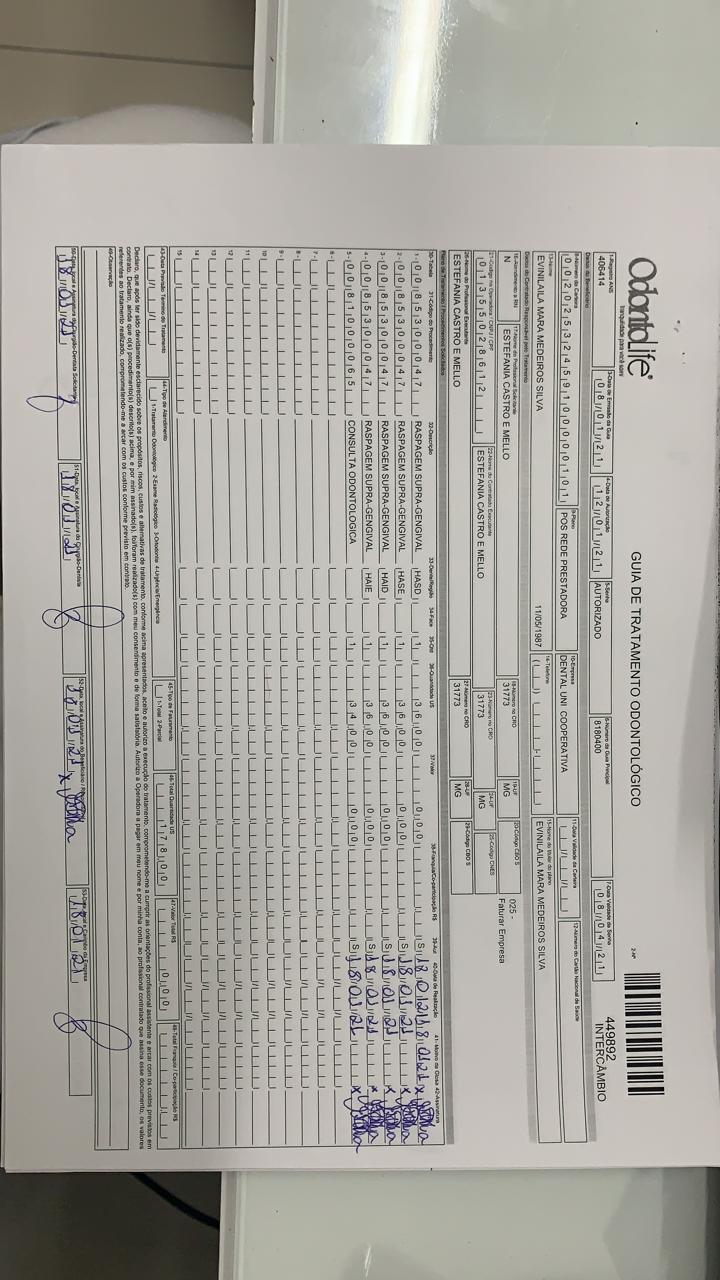 Odontolife®
tranquilidade para você sorrir
GUIA DE TRATAMENTO ODONTOLÓGICO
2-Nº
449892
INTERCÂMBIO
1-Registro ANS
406414
3-Data de Emissão da Guia
08/01/21
4-Data de Autorização
12/01/21
5-Senha
AUTORIZADO
6-Número da Guia Principal
8180400
7-Data Validade da Senha
08/04/21
Dados do Beneficiário
8-Número da Carteira
00202532459100000101
9-Plano
POS REDE PRESTADORA
10-Empresa
DENTAL UNI COOPERATIVA
11-Data Validade da Carteira
12-Número do Cartão Nacional de Saúde
13-Nome
EVINILAILA MARA MEDEIROS SILVA
11/05/1987
14-Telefone
15-Nome do titular do plano
EVINILAILA MARA MEDEIROS SILVA
Dados do Contratado Responsável pelo Tratamento
16-Atendimento a RN
N
17-Nome do Profissional Solicitante
ESTEFANIA CASTRO E MELLO
18-Número no CRO
31773
19-UF
MG
20-Código CBO S
025 -
Faturar Empresa
21-Código na Operadora / CNPJ / CPF
01355028612
22-Nome do Contratado Executante
ESTEFANIA CASTRO E MELLO
23-Número no CRO
31773
24-UF
MG
25-Código CNES
26-Nome do Profissional Executante
ESTEFANIA CASTRO E MELLO
27-Número no CRO
31773
28-UF
MG
29-Código CBO S
Plano de Tratamento / Procedimentos Solicitados
30-Tabela 31-Código do Procedimento 32-Descrição 33-Dente/Região 34-Face 35-Qtd 36-Quantidade US 37-Valor 38-Franquia/Co-participação R$ 39-Aut 40-Data de Realização 41- Motivo da Glosa 42-Assinatura
1- 00 85300047 RASPAGEM SUPRA-GENGIVAL HASD 1 36,00 0,00 S 18/01/21 18 01 21 x
2- 00 85300047 RASPAGEM SUPRA-GENGIVAL HASE 1 36,00 0,00 S 18/01/21 x
3- 00 85300047 RASPAGEM SUPRA-GENGIVAL HAID 1 36,00 0,00 S 18/01/21 x
4- 00 85300047 RASPAGEM SUPRA-GENGIVAL HAIE 1 36,00 0,00 S 18/01/21 x
5- 00 81000065 CONSULTA ODONTOLOGICA 1 34,00 0,00 S 18/01/21 x
6-
7-
8-
9-
10
11
12
13
14
15
43-Data Previsão Término do Tratamento
44-Tipo de Atendimento
1-Tratamento Odontológico 2-Exame Radiológico 3-Ortodontia 4-Urgência/Emergência
45-Tipo de Faturamento
1-Total 2-Parcial
46-Total Quantidade US
178,00
47-Valor Total R$
0,00
48-Total Franquia / Co-participação R$
Declaro, que após ter sido devidamente esclarecido sobre os propósitos, riscos, custos e alternativas de tratamento, conforme acima apresentados, aceito e autorizo a execução do tratamento, comprometendo-me a cumprir as orientações do profissional assistente e arcar com os custos previstos em
contrato. Declaro, ainda que o(s) procedimento(s) descrito(s) acima, e por mim assinado(s), foi/foram realizado(s) com meu consentimento e de forma satisfatória. Autorizo a Operadora a pagar em meu nome e por minha conta, ao profissional contratado que assina esse documento, os valores
referentes ao tratamento realizado, comprometendo-me a arcar com os custos conforme previsto em contrato.
49-Observação
50-Data, local e Assinatura do Cirurgião-Dentista Solicitante
18/01/21
51-Data, local e Assinatura do Cirurgião-Dentista
18/01/21
52-Data, local e Assinatura do Beneficiário
18/01/21 x
53-Data, local e Carimbo da Empresa
18/01/21